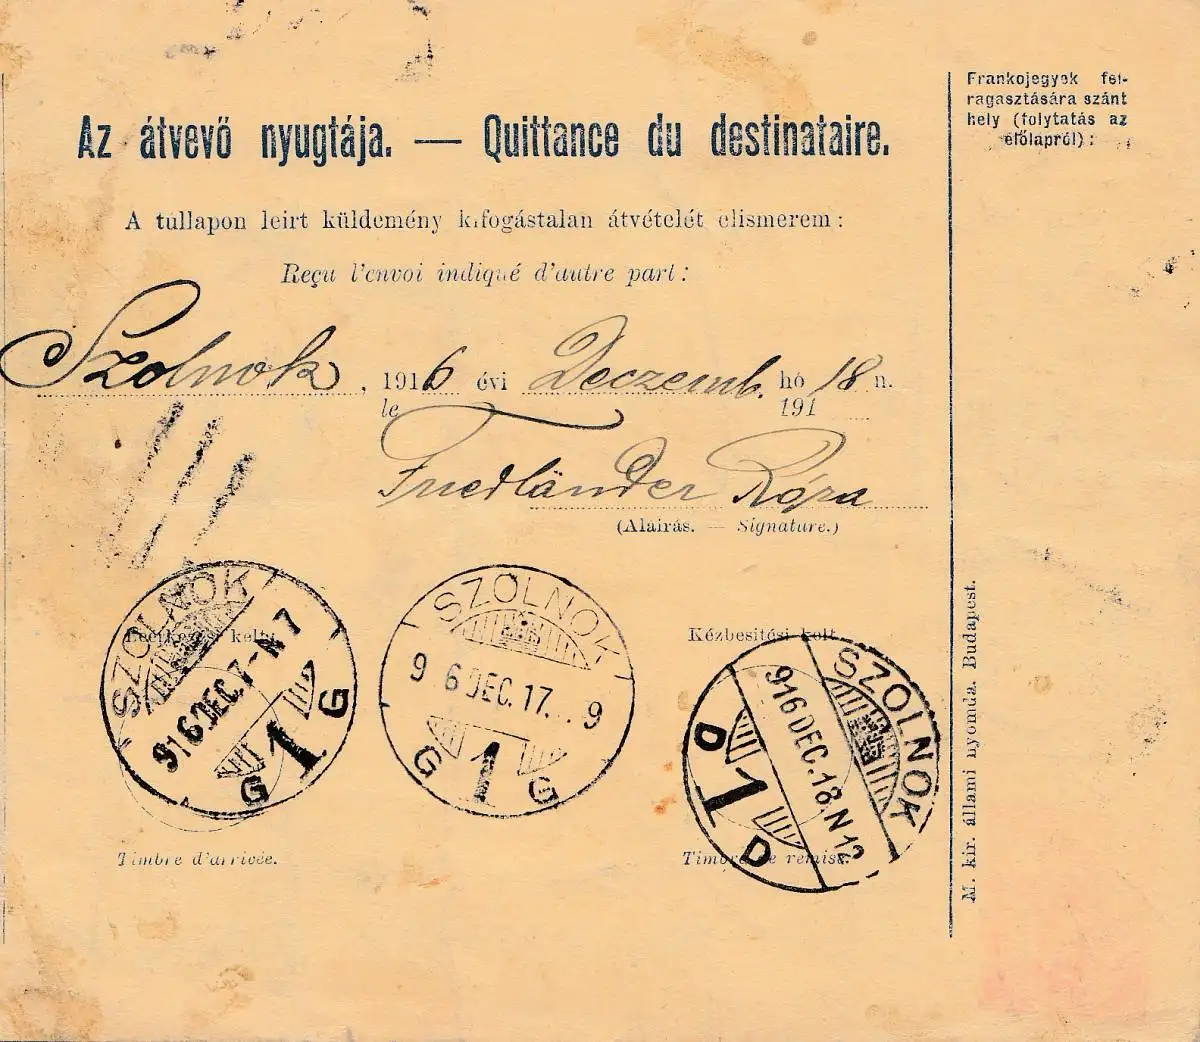 Frankojegyek fel-
ragasztására szánt
hely (folytatás az
előlapról):
Az átvevő nyugtája. — Quittance du destinataire.
A túllapon leírt küldemény kifogástalan átvételét elismerem:
Reçu l'envoi indiqué d'autre part:
Szolnok, 1916 évi Deczemb. hó 18 n.
le 191
Friedländer Róza
(Aláirás. — Signature.)
Beérkezési kelt:
Kézbesitési kelt
SZOLNOK
916 DEC. 17. N 7
G 1 G
SZOLNOK
9 6 DEC. 17. . . 9
G 1 G
SZOLNOK
916 DEC. 18. N 12
D 1 D
Timbre d'arrivée.
Timbre de remise.
M. kir. állami nyomda. Budapest.